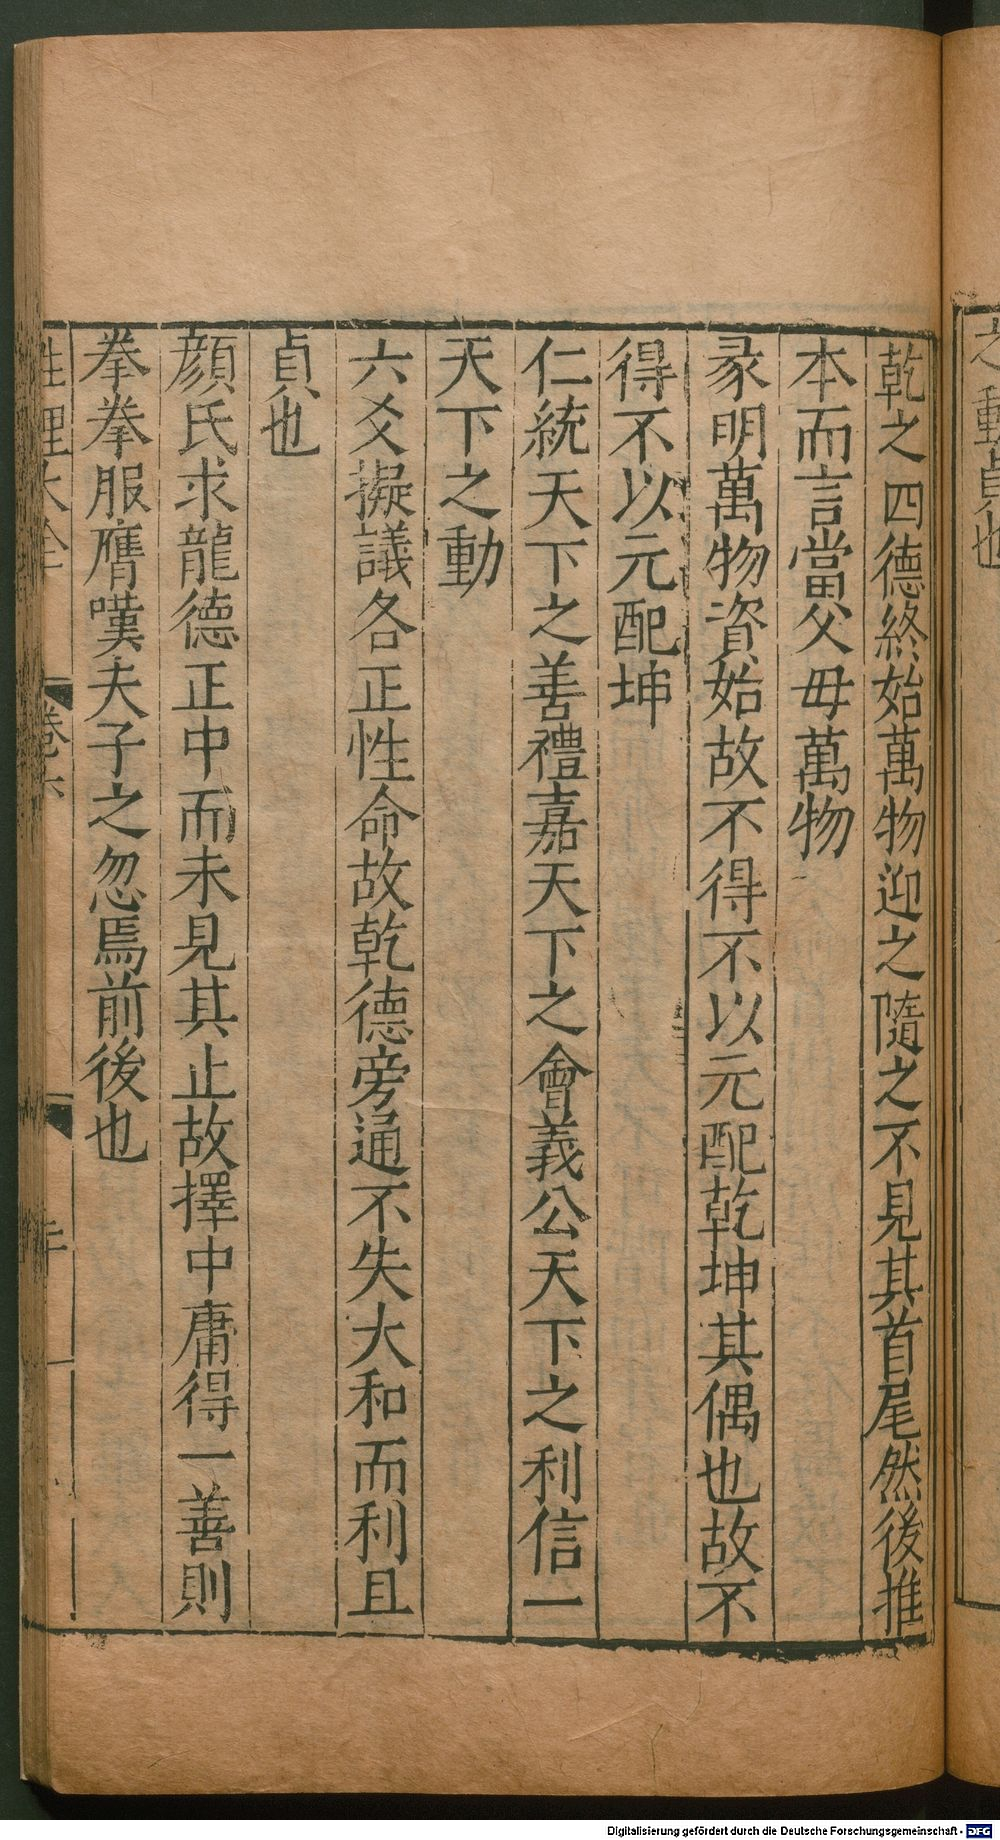 之動貞也
乾之四德終始萬物迎之隨之不見其首尾然後推
本而言當父母萬物
彖明萬物資始故不得不以元配乾坤其偶也故不
得不以元配坤
仁統天下之善禮嘉天下之會義公天下之利信一
天下之動
六爻擬議各正性命故乾德旁通不失大和而利且
貞也
顔氏求龍德正中而未見其止故擇中庸得一善則
拳拳服膺嘆夫子之忽焉前後也
性理大全
卷六
Digitalisierung gefördert durch die Deutsche Forschungsgemeinschaft - DFG